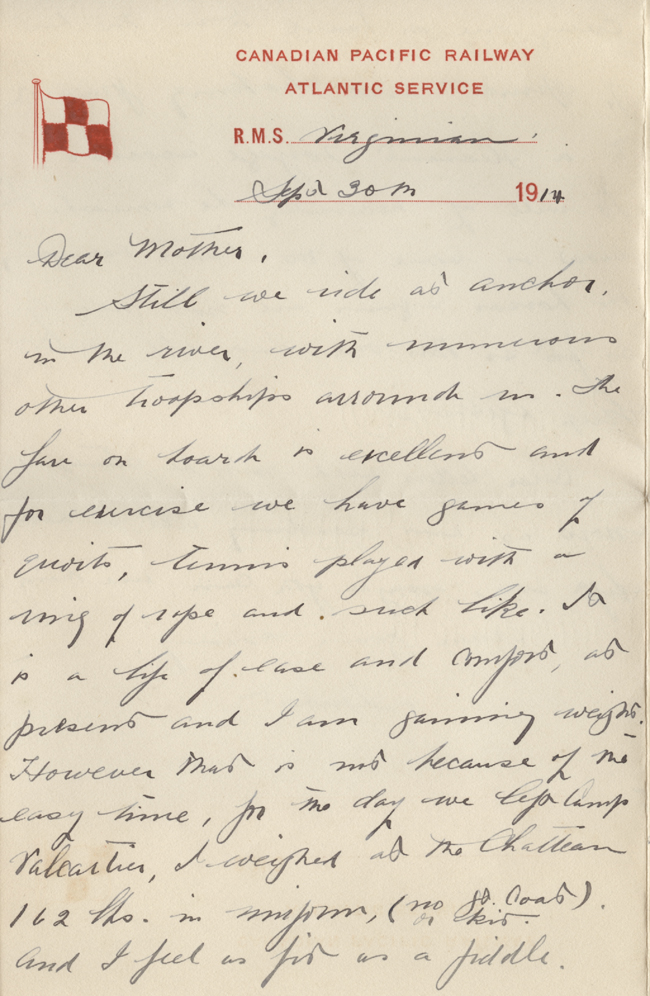 CANADIAN PACIFIC RAILWAY
ATLANTIC SERVICE
R.M.S. Virginian.
Sept 30th 1914
Dear Mother,
Still we ride at anchor,
in the river, with numerous
other troopships arround us. The
fare on board is excellent and
for exercise we have games of
quoits, tennis played with a
ring of rope and such like. It
is a life of ease and comfort, at
present and I am gaining weight.
However that is not because of the
easy time, for the day we left Camp
Valcartier, I weighed at the Chatteau
162 lbs. in uniform, (no gt. coat
or kit).
and I feel as fit as a fiddle.